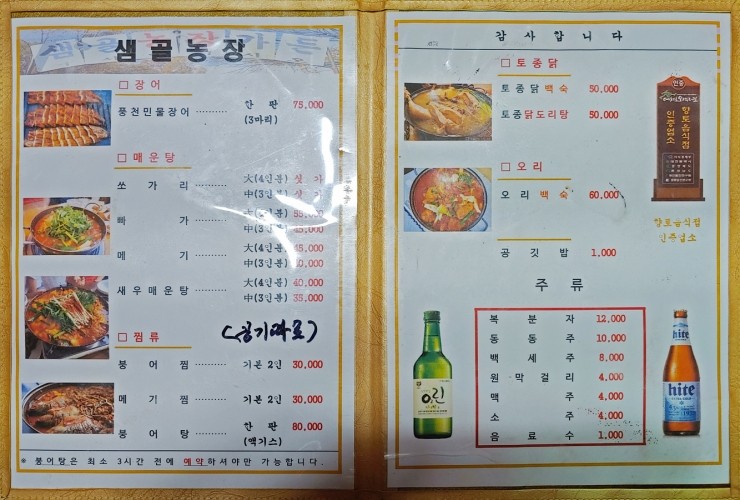 샘골농장
□ 장어
풍천민물장어 ·········· 한 판 75,000
(3마리)
□ 매운탕
쏘 가 리 ·········· 大(4인분) 싯 가
中(3인분) 싯 가
빠 가 ·········· 大(4인분) 55,000
中(3인분) 45,000
메 기 ·········· 大(4인분) 45,000
中(3인분)
새우매운탕 ·········· 大(4인분) 40,000
中(3인분) 35,000
□ 찜류
(공기별도)
붕 어 찜 ·········· 기본 2인 30,000
메 기 찜 ·········· 기본 2인 30,000
붕 어 탕 ·········· 한 판 80,000
(엑기스)
* 붕어탕은 최소 3시간 전에 예약하셔야만 가능합니다.
감 사 합 니 다
□ 토종닭
토종닭 백숙 50,000
토종닭도리탕 50,000
□ 오리
오리 백숙 60,000
공 깃 밥 1,000
인증
향토음식점
인증업소
향토음식점
인증업소
주 류
복 분 자 12,000
동 동 주 10,000
백 세 주 8,000
원 막 걸 리 4,000
맥 주 4,000
소 주 4,000
음 료 수 1,000
O2린
hite
hite